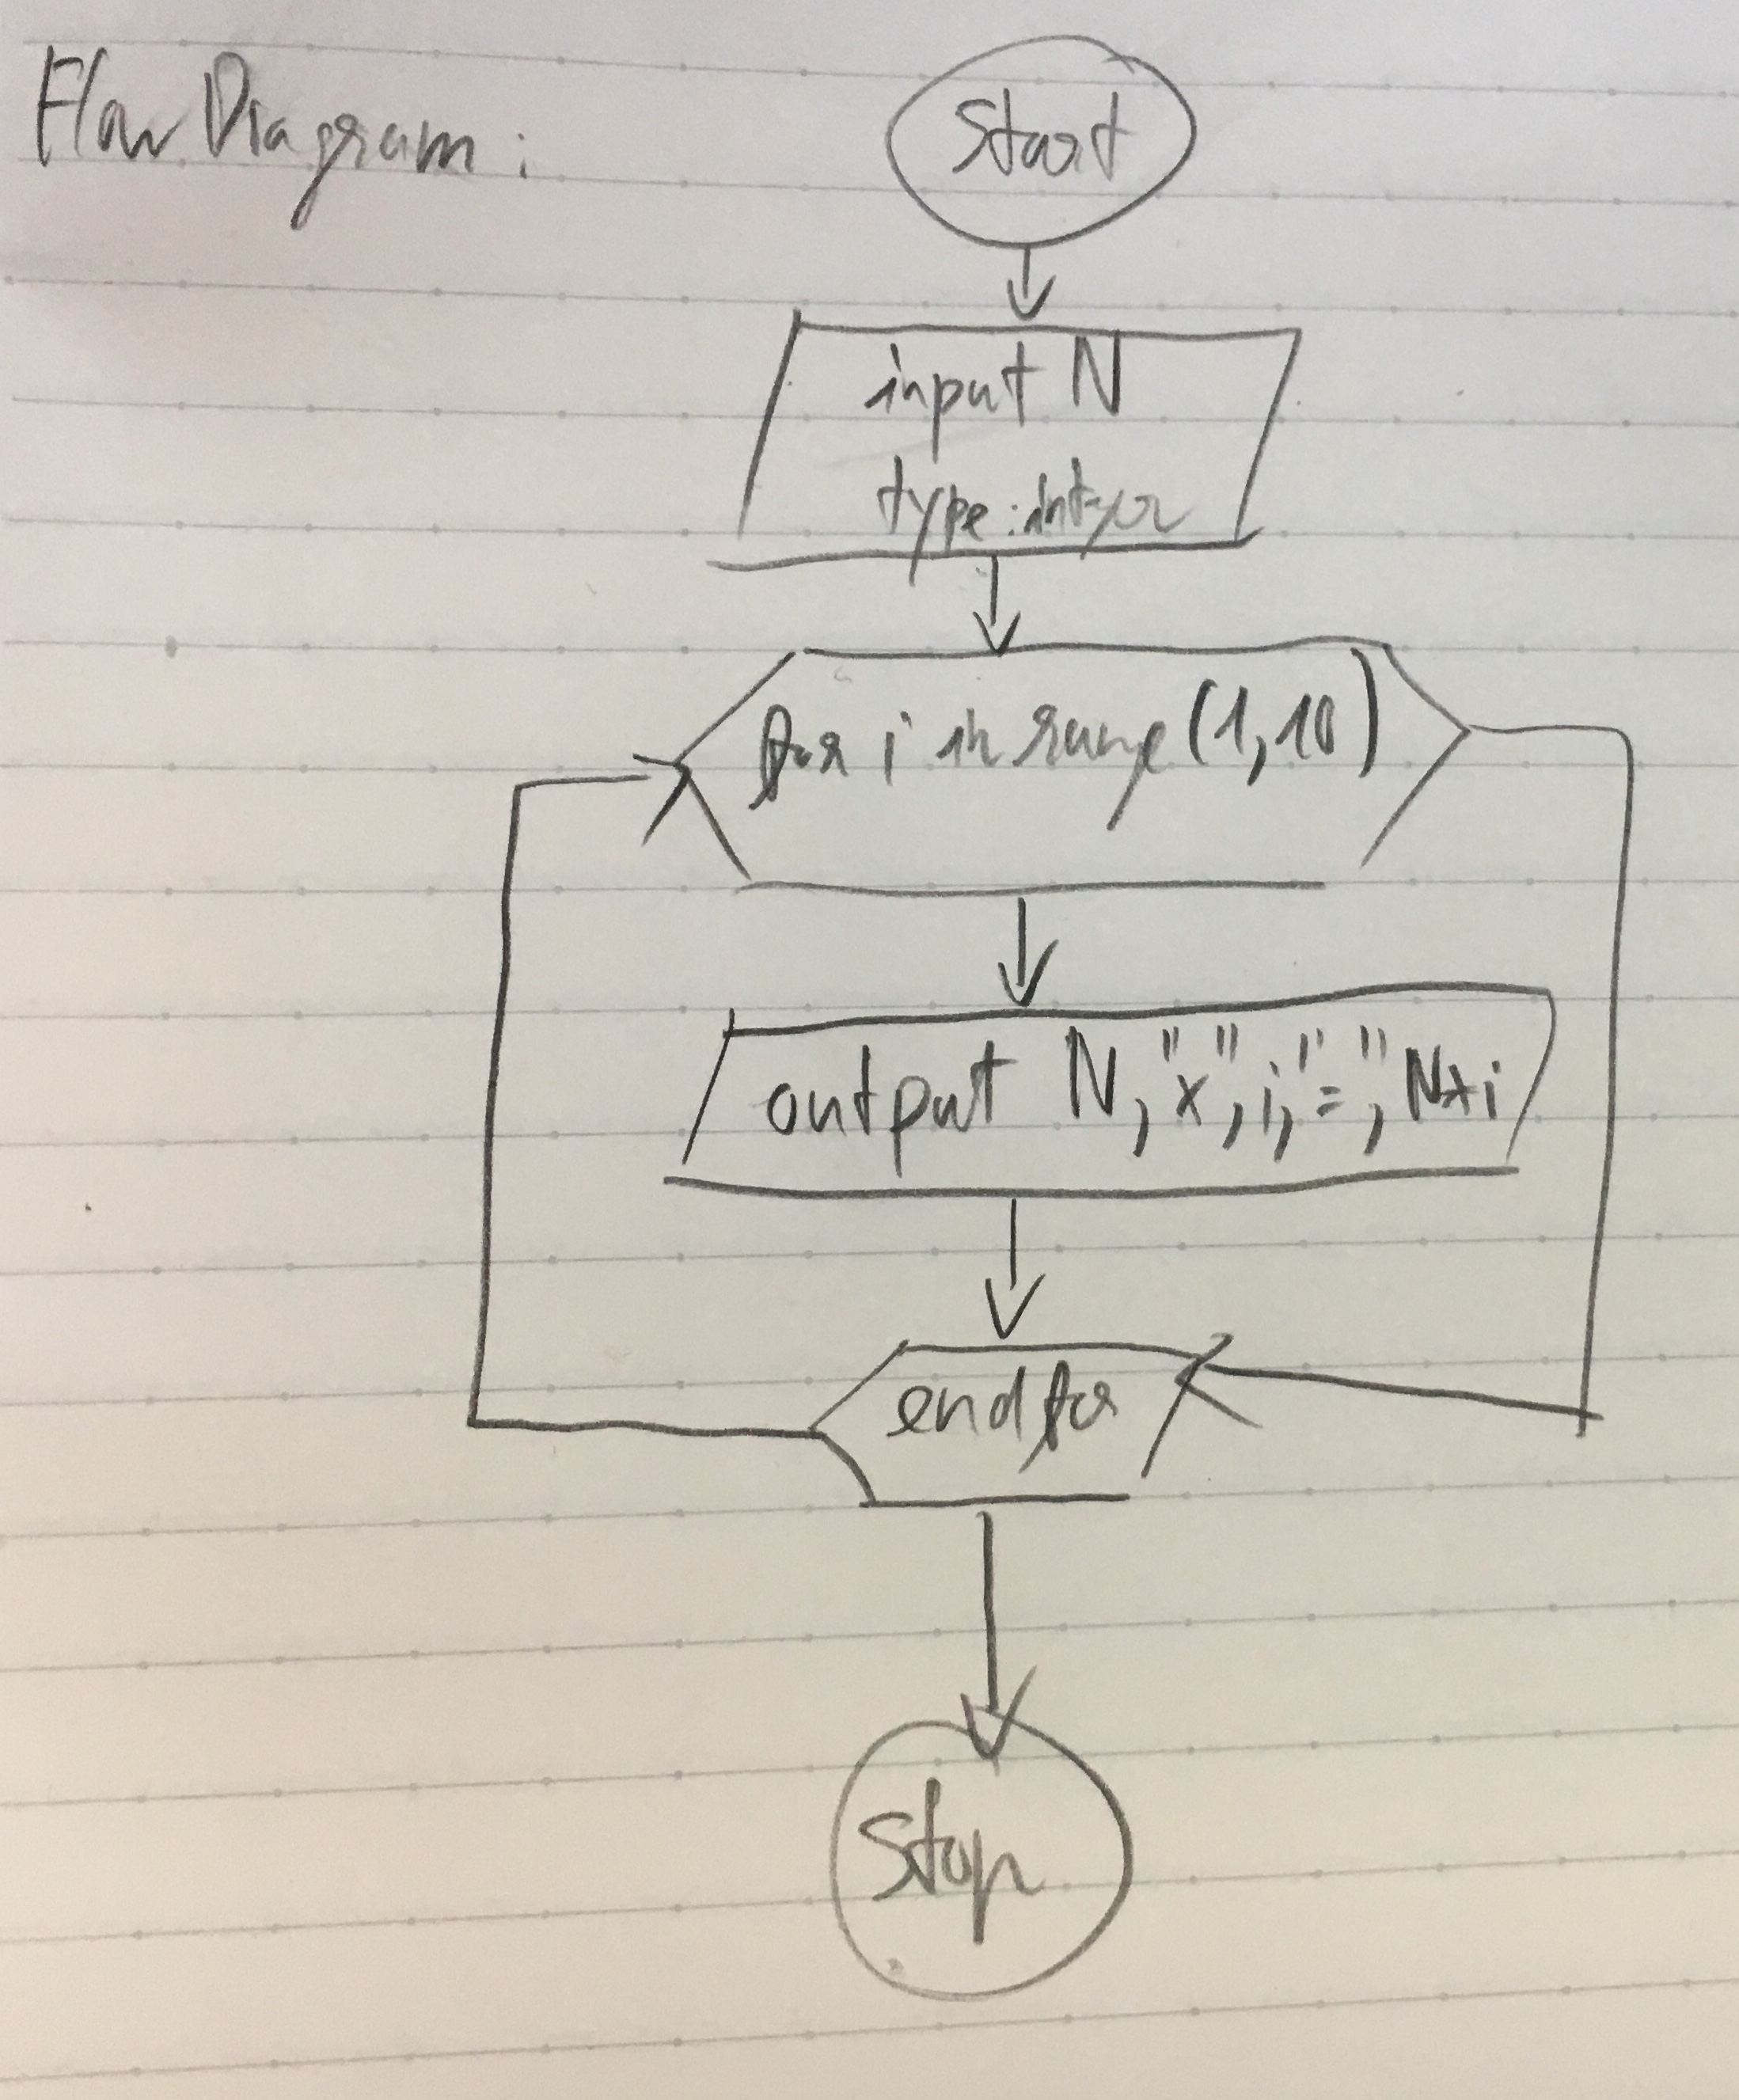 Flow Diagram :
Start
input N
type : integer
for i in range (1,10)
output N,"x",i,"=",N*i
end for
Stop